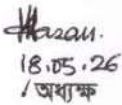 Hasan.
18.05.26
/ অধ্যক্ষ